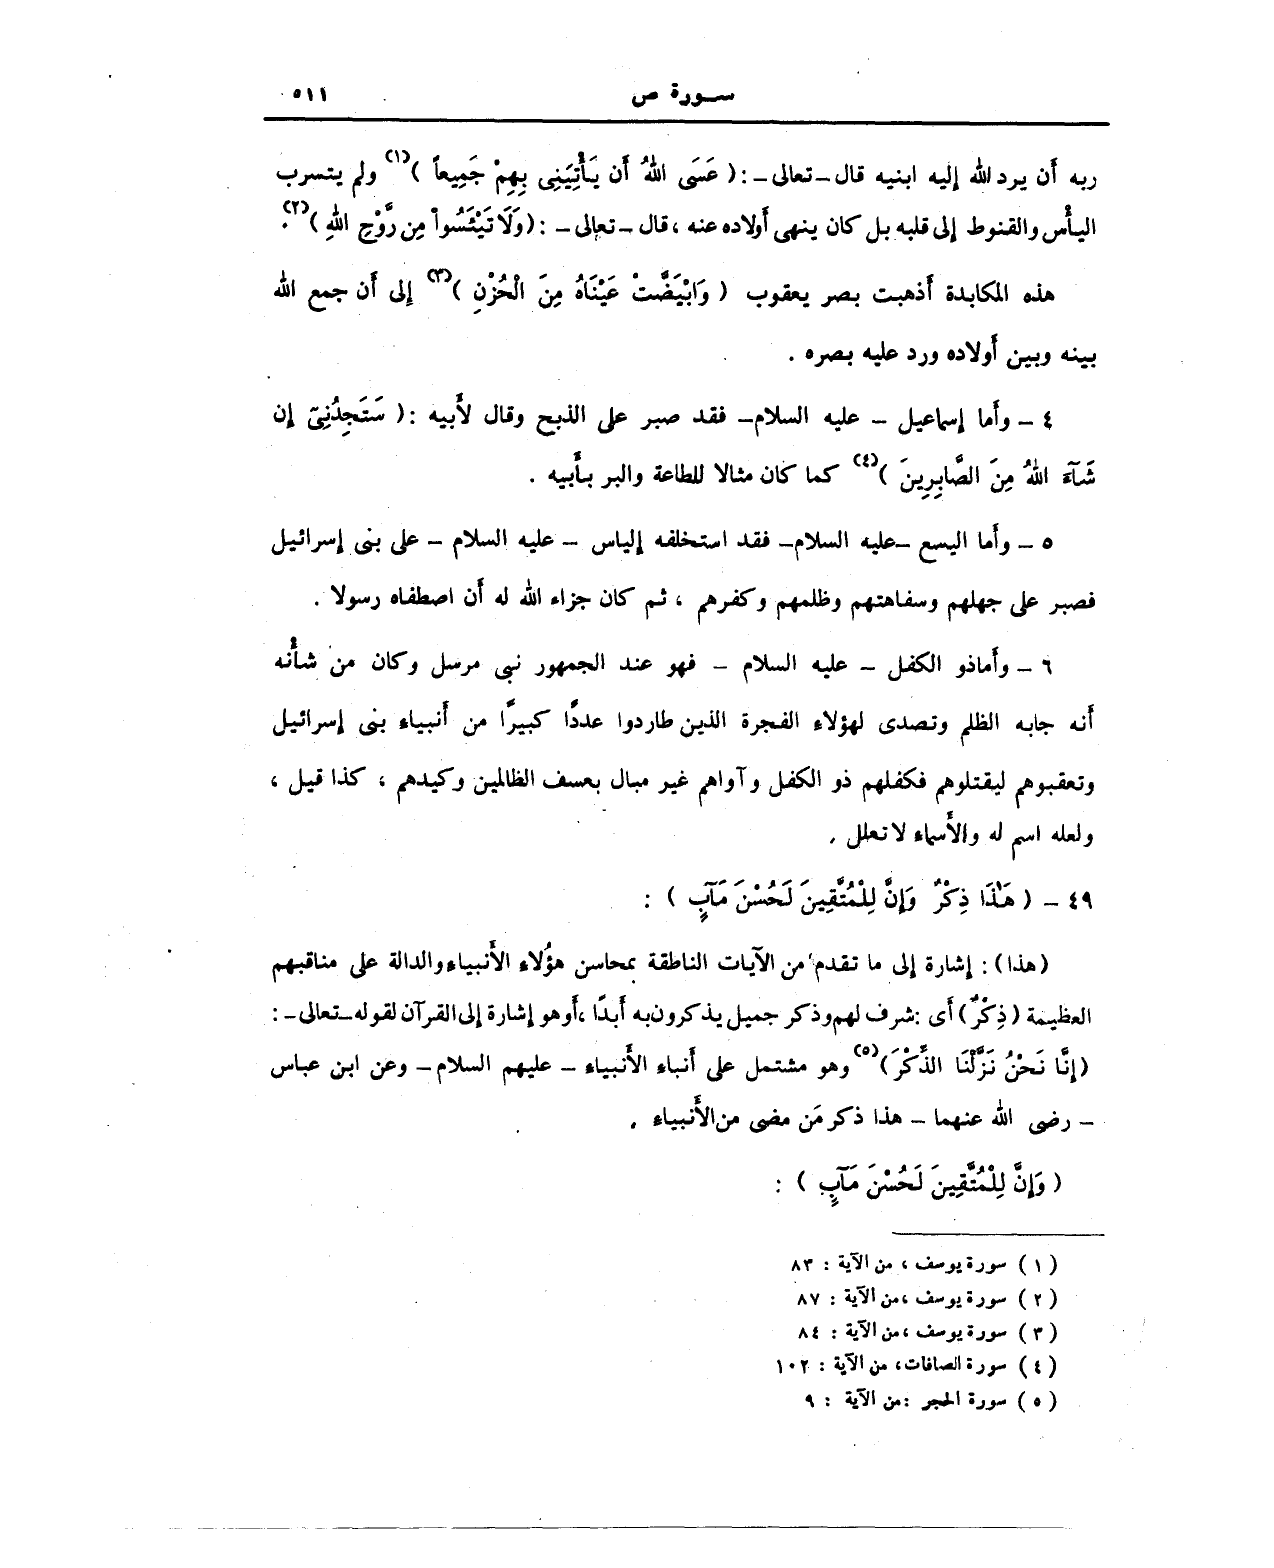 سورة ص ٥١١
ربه أن يرد الله إليه ابنيه قال ـ تعالى ـ : ( عَسَى اللهُ أن يَأْتِيَنِى بِهِمْ جَمِيعاً )(١) ولم يتسرب
اليأس والقنوط إلى قلبه بل كان ينهى أولاده عنه ، قال ـ تعالى ـ : ( وَلَا تَيْئَسُواْ مِن رَّوْحِ اللهِ )(٢).
هذه المكابدة أذهبت بصر يعقوب ( وَابْيَضَّتْ عَيْنَاهُ مِنَ الْحُزْنِ )(٣) إلى أن جمع الله
بينه وبين أولاده ورد عليه بصره .
٤ ـ وأما إسماعيل ـ عليه السلام ـ فقد صبر على الذبح وقال لأبيه : ( سَتَجِدُنِىٓ إن
شَآءَ اللهُ مِنَ الصَّابِرِينَ )(٤) كما كان مثالا للطاعة والبر بأبيه .
٥ ـ وأما اليسع ـ عليه السلام ـ فقد استخلفه إلياس ـ عليه السلام ـ على بنى إسرائيل
فصبر على جهلهم وسفاهتهم وظلمهم وكفرهم ، ثم كان جزاء الله له أن اصطفاه رسولا .
٦ ـ وأماذو الكفل ـ عليه السلام ـ فهو عند الجمهور نبى مرسل وكان من شأنه
أنه جابه الظلم وتصدى لهؤلاء الفجرة الذين طاردوا عددًا كبيرًا من أنبياء بنى إسرائيل
وتعقبوهم ليقتلوهم فكفلهم ذو الكفل وآواهم غير مبال بعسف الظالمين وكيدهم ، كذا قيل ،
ولعله اسم له والأسماء لا تعلل .
٤٩ ـ ( هَـٰذَا ذِكْرٌ وَإِنَّ لِلْمُتَّقِينَ لَحُسْنَ مَآبٍ ) :
(هذا) : إشارة إلى ما تقدم من الآيات الناطقة بمحاسن هؤلاء الأنبياء والدالة على مناقبهم
العظيمة ( ذِكْرٌ ) أى : شرف لهم وذكر جميل يذكرون به أبدًا ، أو هو إشارة إلى القرآن لقوله ـ تعالى ـ :
( إِنَّا نَحْنُ نَزَّلْنَا الذِّكْرَ )(٥) وهو مشتمل على أنباء الأنبياء ـ عليهم السلام ـ وعن ابن عباس
ـ رضى الله عنهما ـ هذا ذكر مَن مضى من الأنبياء .
( وَإِنَّ لِلْمُتَّقِينَ لَحُسْنَ مَآبٍ ) :
( ١ ) سورة يوسف ، من الآية : ٨٣
( ٢ ) سورة يوسف ، من الآية : ٨٧
( ٣ ) سورة يوسف ، من الآية : ٨٤
( ٤ ) سورة الصافات ، من الآية : ١٠٢
( ٥ ) سورة الحجر : من الآية : ٩